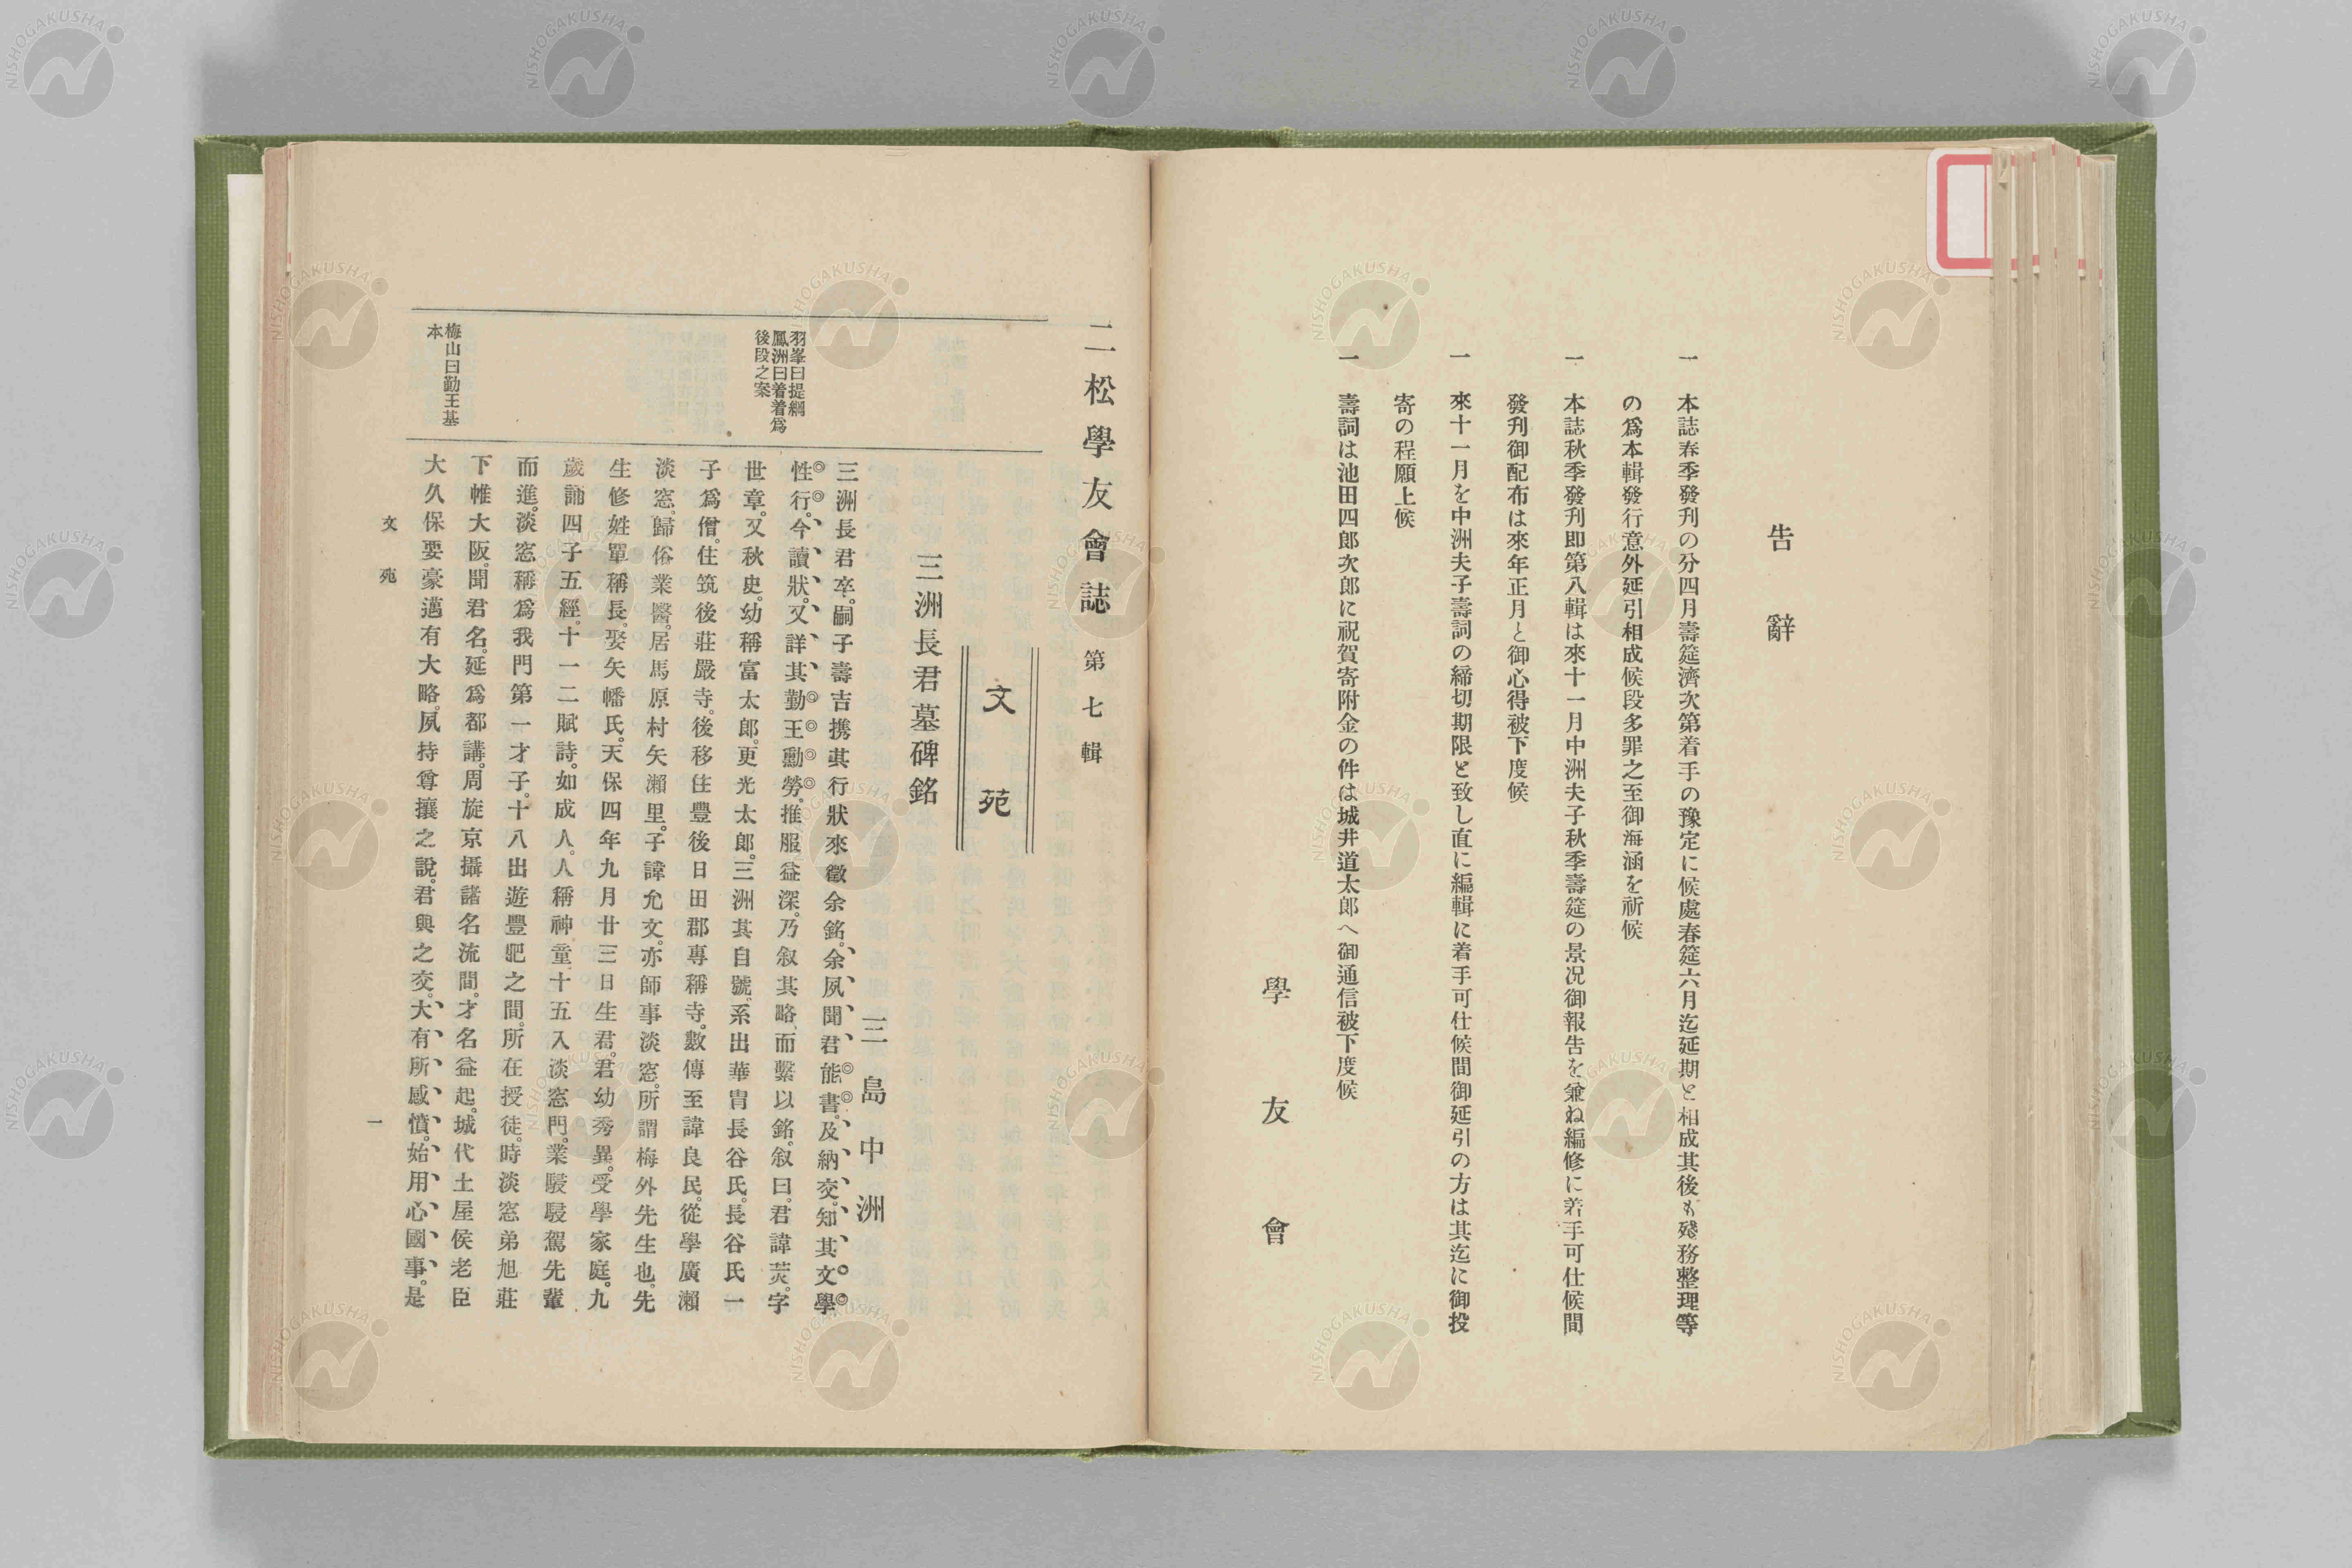 告辭
一 本誌春季發刊の分四月壽筵濟次第着手の豫定に候處春筵六月迄延期と相成其後も殘務整理等
の爲本輯發行意外延引相成候段多罪之至御海涵を祈候
一 本誌秋季發刊即第八輯は來十一月中洲夫子秋季壽筵の景况御報告を兼ね編修に着手可仕候間
發刊御配布は來年正月と御心得被下度候
一 來十一月を中洲夫子壽詞の締切期限と致し直に編輯に着手可仕候間御延引の方は其迄に御投
寄の程願上候
一 壽詞は池田四郎次郎に祝賀寄附金の件は城井道太郎へ御通信被下度候
學友會
二松學友會誌 第七輯
文苑
三洲長君墓碑銘
三島中洲
羽峯曰提綱
鳳洲曰着着爲
後段之案
三洲長君卒。嗣子壽吉携其行狀來徵余銘。余夙聞君能書。及納交。知其文學
性行。今讀狀。又詳其勤王勳勞。推服益深。乃叙其略而繫以銘。叙曰。君諱炗。字
世章。又秋史。幼稱富太郎。更光太郎。三洲其自號。系出華冑長谷氏。長谷氏一
子爲僧。住筑後莊嚴寺。後移住豐後日田郡專稱寺。數傳至諱良民。從學廣瀨
淡窓。歸俗業醫。居馬原村矢瀨里。子諱允文。亦師事淡窓。所謂梅外先生也。先
生修姓單稱長。娶矢幡氏。天保四年九月廿三日生君。君幼秀異。受學家庭。九
歲誦四子五經。十一二賦詩。如成人。人稱神童。十五入淡窓門。業駸駸駕先輩
而進。淡窓稱爲我門第一才子。十八出遊豐肥之間。所在授徒。時淡窓弟旭莊
下帷大阪。聞君名。延爲都講。周旋京攝諸名流間。才名益起。城代土屋侯老臣
大久保要豪邁有大略。夙持尊攘之說。君與之交。大有所感憤。始用心國事。是
梅山曰勤王基
本
文苑
一
NISHOGAKUSHA